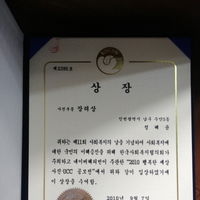 상 장
사진부문 장려상
인천광역시 남구 주안5동
귀하는 제11회 사회복지의 날을 기념하여 사회복지에
대한 국민의 이해증진을 위해 한국사회복지협의회가
주최하고 네이버해피빈이 주관한 "2010 행복한 세상
사진·UCC 공모전"에서 위와 같이 입상하였기에
이 상장을 수여함.
2010년 9월 7일